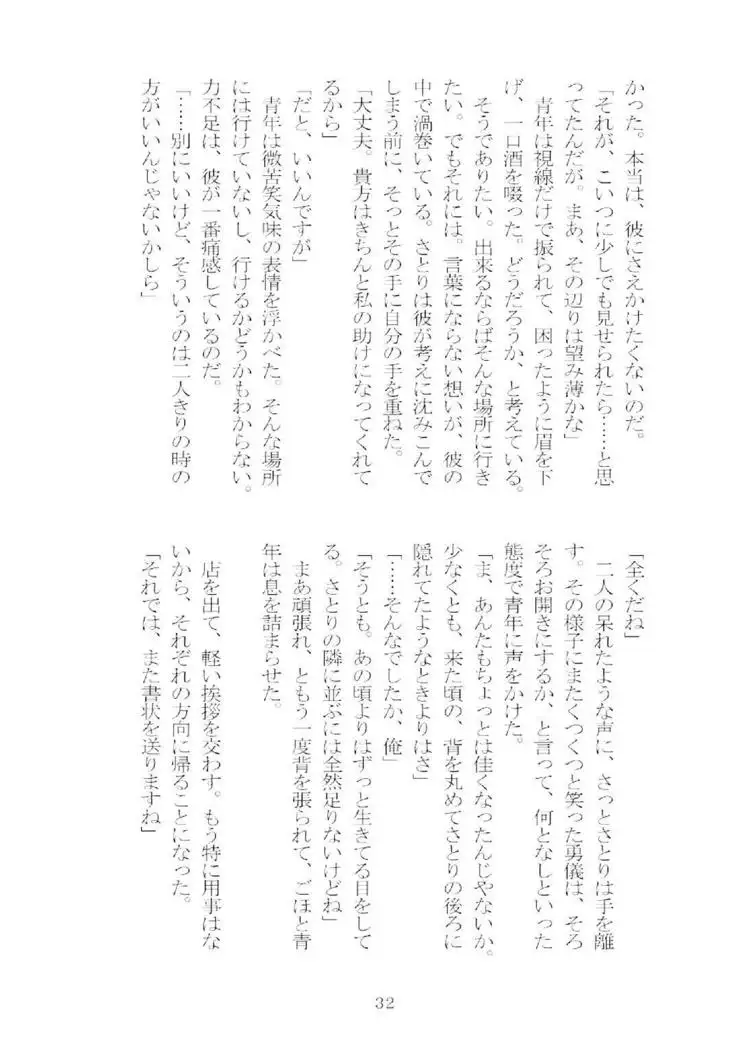 かった。本当は、彼にさえかけたくないのだ。
「それが、こいつに少しでも見せられたら……と思
ってたんだが。まあ、その辺りは望み薄かな」
青年は視線だけで振られて、困ったように眉を下
げ、一口酒を啜った。どうだろうか、と考えている。
そうでありたい。出来るならばそんな場所に行き
たい。でもそれには。言葉にならない想いが、彼の
中で渦巻いている。さとりは彼が考えに沈みこんで
しまう前に、そっとその手に自分の手を重ねた。
「大丈夫。貴方はきちんと私の助けになってくれて
るから」
「だと、いいんですが」
青年は微苦笑気味の表情を浮かべた。そんな場所
には行けていないし、行けるかどうかもわからない。
力不足は、彼が一番痛感しているのだ。
「……別にいいけど、そういうのは二人きりの時の
方がいいんじゃないかしら」
「全くだね」
二人の呆れたような声に、さっとさとりは手を離
す。その様子にまたくつくつと笑った勇儀は、そろ
そろお開きにするか、と言って、何となしといった
態度で青年に声をかけた。
「ま、あんたもちょっとは佳くなったんじゃないか。
少なくとも、来た頃の、背を丸めてさとりの後ろに
隠れてたようなときよりはさ」
「……そんなでしたか、俺」
「そうとも。あの頃よりはずっと生きてる目をして
る。さとりの隣に並ぶには全然足りないけどね」
まあ頑張れ、ともう一度背を張られて、ごほと青
年は息を詰まらせた。
店を出て、軽い挨拶を交わす。もう特に用事はな
いから、それぞれの方向に帰ることになった。
「それでは、また書状を送りますね」
32